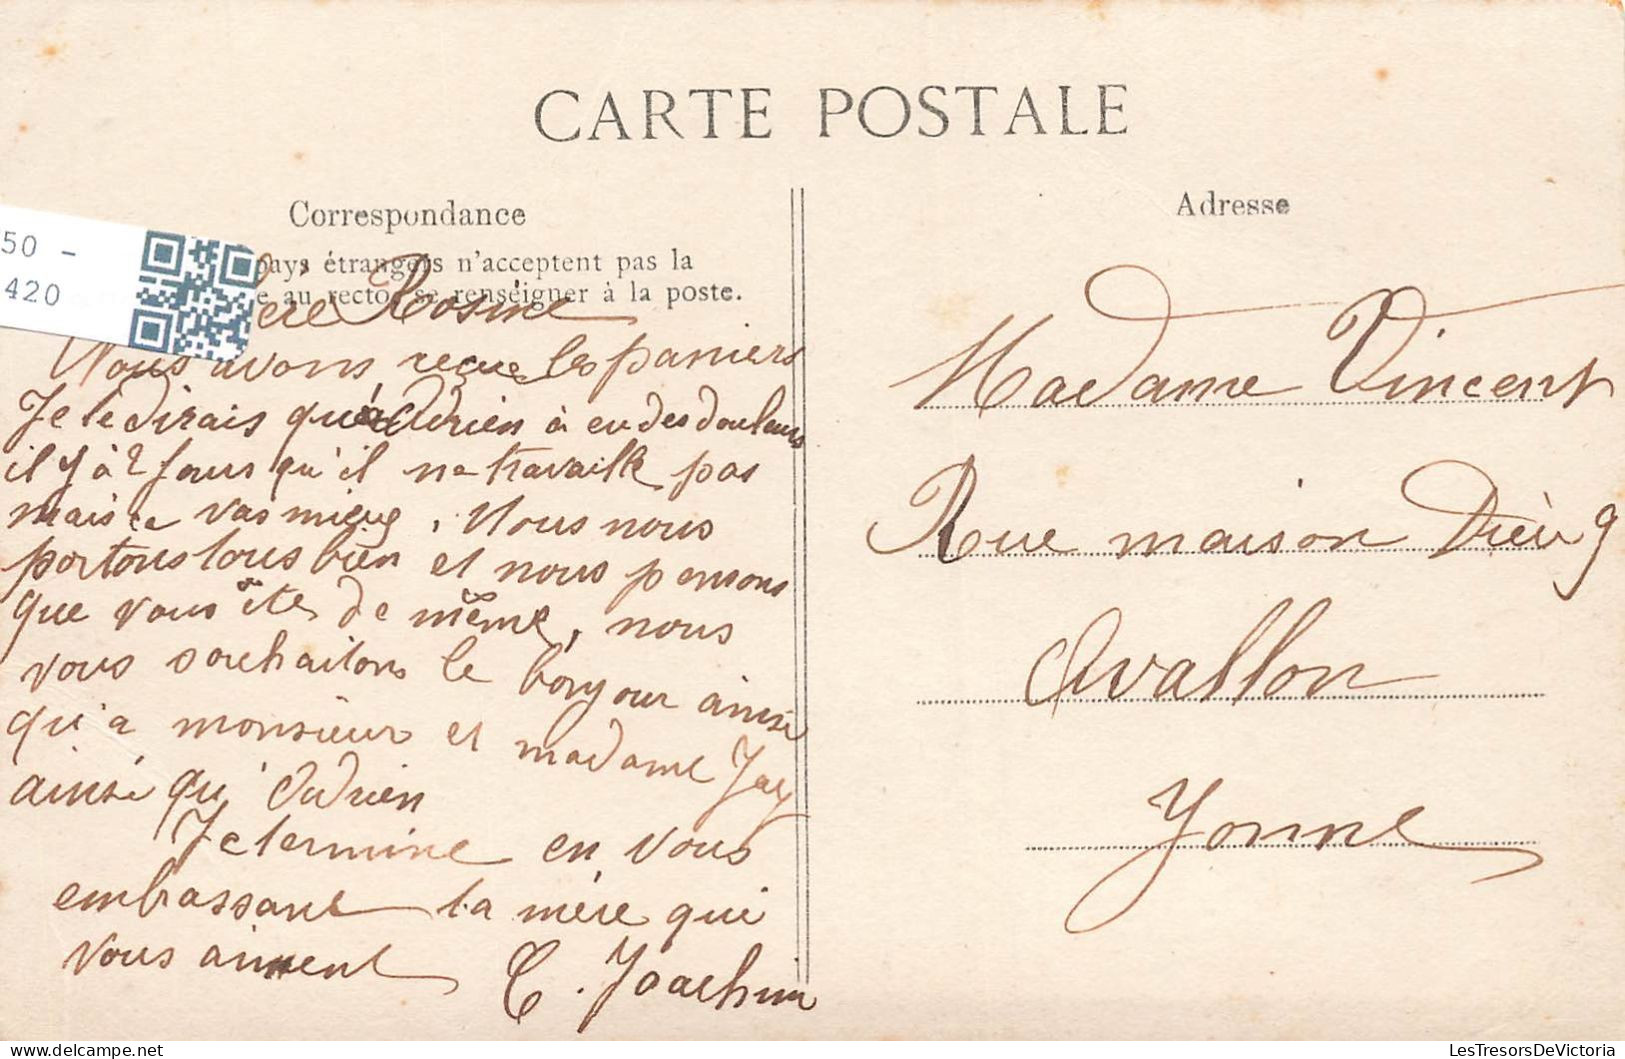 CARTE POSTALE
Correspondance
pays étrangers n'acceptent pas la
e au recto, se renseigner à la poste.
50 -
420
ère Rosine
Nous avons reçue les paniers
Je te dirais que Adrien à eu des douleurs
il y à 2 jours qu'il ne travaille pas
mais ce vas mieux, Nous nous
portons tous bien et nous pensons
que vous ête de même, nous
vous souhaitons le bonjour ainsi
qu'a monsieur et madame Jay
ainsi qu'Adrien
Je termine en vous
embrassant ta mère qui
vous aiment
C. Joachim
Adresse
Madame Vincent
Rue maison Dieu 9
Avallon
Yonne
LesTresorsDeVictoria